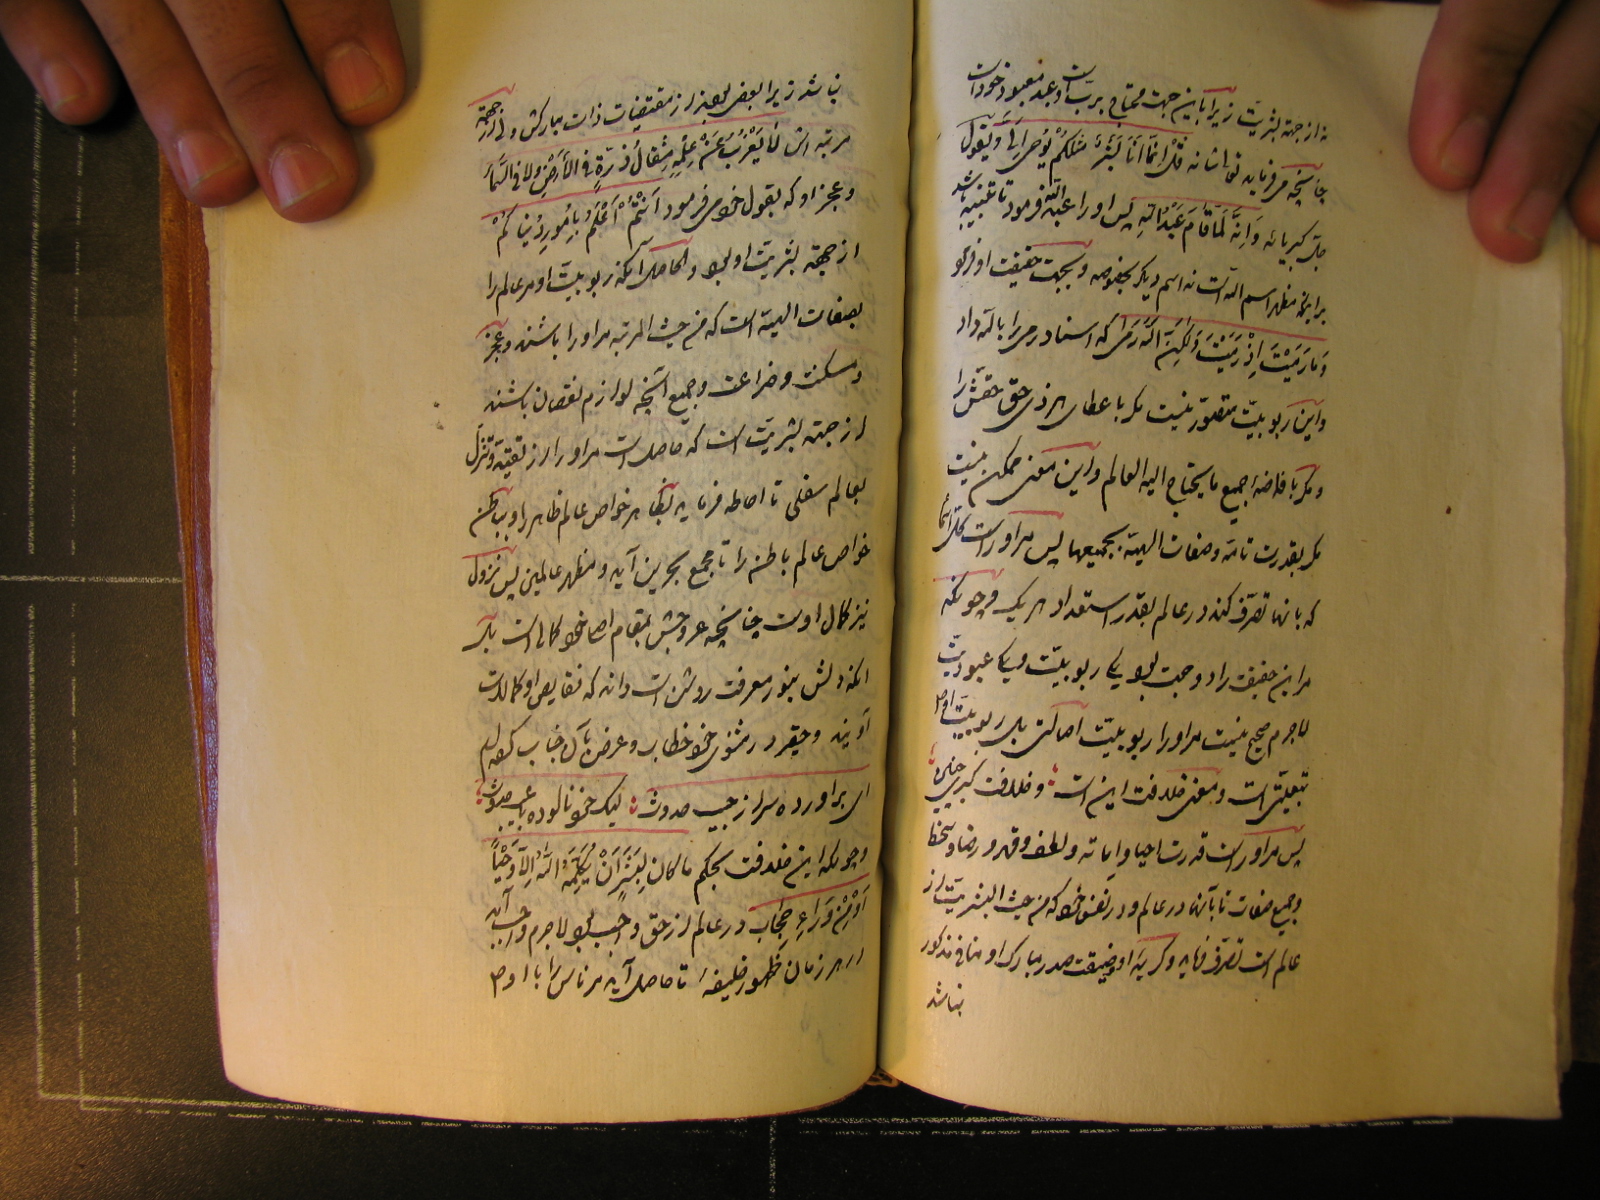 نه از جهة بشریت زیرا باین جهت محتاج بربّ است و عبد معبود خود است
چنانچه میفرماید تعالی شانه قُلْ اِنَّمَا اَنَا بَشَرٌ مِثْلُکُمْ یُوحٰی اِلَیَّ و یقول
جلّ کبریائه وَ اَنَّهُ لَمّا قامَ عَبْدُ اللّهِ پس او را عبد اللّه فرمود تا تنبیه باشد
برانکه مظهر اسم اللّه است نه اسم دیگر بخصوصه و بجهت حقیقت او فرمود
وَ مَا رَمَیْتَ اِذْ رَمَیْتَ وَلٰکِنَّ اللّٰهَ رَمٰی که اسناد رمی را باللّه داد
و این ربوبیّت متصوّر نیست مگر باعطای هر ذی حق حقّش را
و مگر بافاضهٔ جمیع ما یحتاج الیه العالم و این معنی ممکن نیست
مگر بقدرت تامه و صفات الهیّة بجمیعها پس مر او راست کلّ اسما
که بانها تصرّف کند در عالم بقدر استعداد هر یک و چونکه
مر این حقیقت را دو جهت بود یکی ربوبیّت و یکی عبودیّت
لاجرم صحیح نیست مر او را ربوبیّت اصالتی بلکه ربوبیّت او
تبعیّتی است و معنی خلافت این است و خلافت کبری چنین
پس مر او راست قدرت احیا و اماته و لطف و قهر و رضا و سخط
و جمیع صفات تا بآنها در عالم و در نفس خود که من حیث البشریّت از
عالم است تصرّف نماید و گریهٔ او و ضیقت صدر مبارک او منافی مذکور
نباشد
نباشد زیرا بعض بعید از مقتضیات ذات مبارکش و از جهة
مرتبه اش لا یَعْزُبُ عَنْ عِلْمِهِ مِثْقالُ ذَرَّةٍ فی الاَرْضِ وَلا فی السَّمٰاءِ
و عجز او که بقول خود می فرمود اَنْتُمْ اَعْلَمُ بِاُمُورِ دُنْیٰاکُمْ
از جهة بشریّت او بود و الحاصل آنکه ربوبیّت او مر عالم را
بصفات الهیّة است که من حیث المرتبه مر او را باشند و عجز
و مسکنت و ضراعت و جمیع آنچه لوازم نقصان باشند
از جهة بشریّت است که حاصل است مر او را از تقیّد و تنزّل
بعالم سفلی تا احاطه فرماید بظاهر خواص عالم ظاهر را و بباطن
خواص عالم باطن را تا مجمع بحرین آید و مظهر عالمین پس نزول
نیز کمال اوست چنانچه عروجش بمقام اصلی خود کمالی است بلکه
آنکه دلش بنور معرفت روشن است داند که نقایص او کمالات
آویند و حقیر در مثنوی خود خطاب و عرض بآن جناب کرده‌ام
ای براورده سر از جیب حدوث لیک خود نالوده باعیب حدوث
و چونکه این خلافت بحکم ما کان لِبَشَرٍ اَنْ یُکَلِّمَهُ اللّٰهُ اِلاّ وَحْیاً
اَوْ مِنْ وَرٰاءِ حِجٰاب در عالم از حق واجب بود لاجرم واجب آید
در هر زمان ظهور خلیفهٔ تا حاصل آید مر ناس را با او